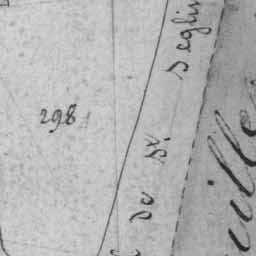 298
de St. Seglin
uille